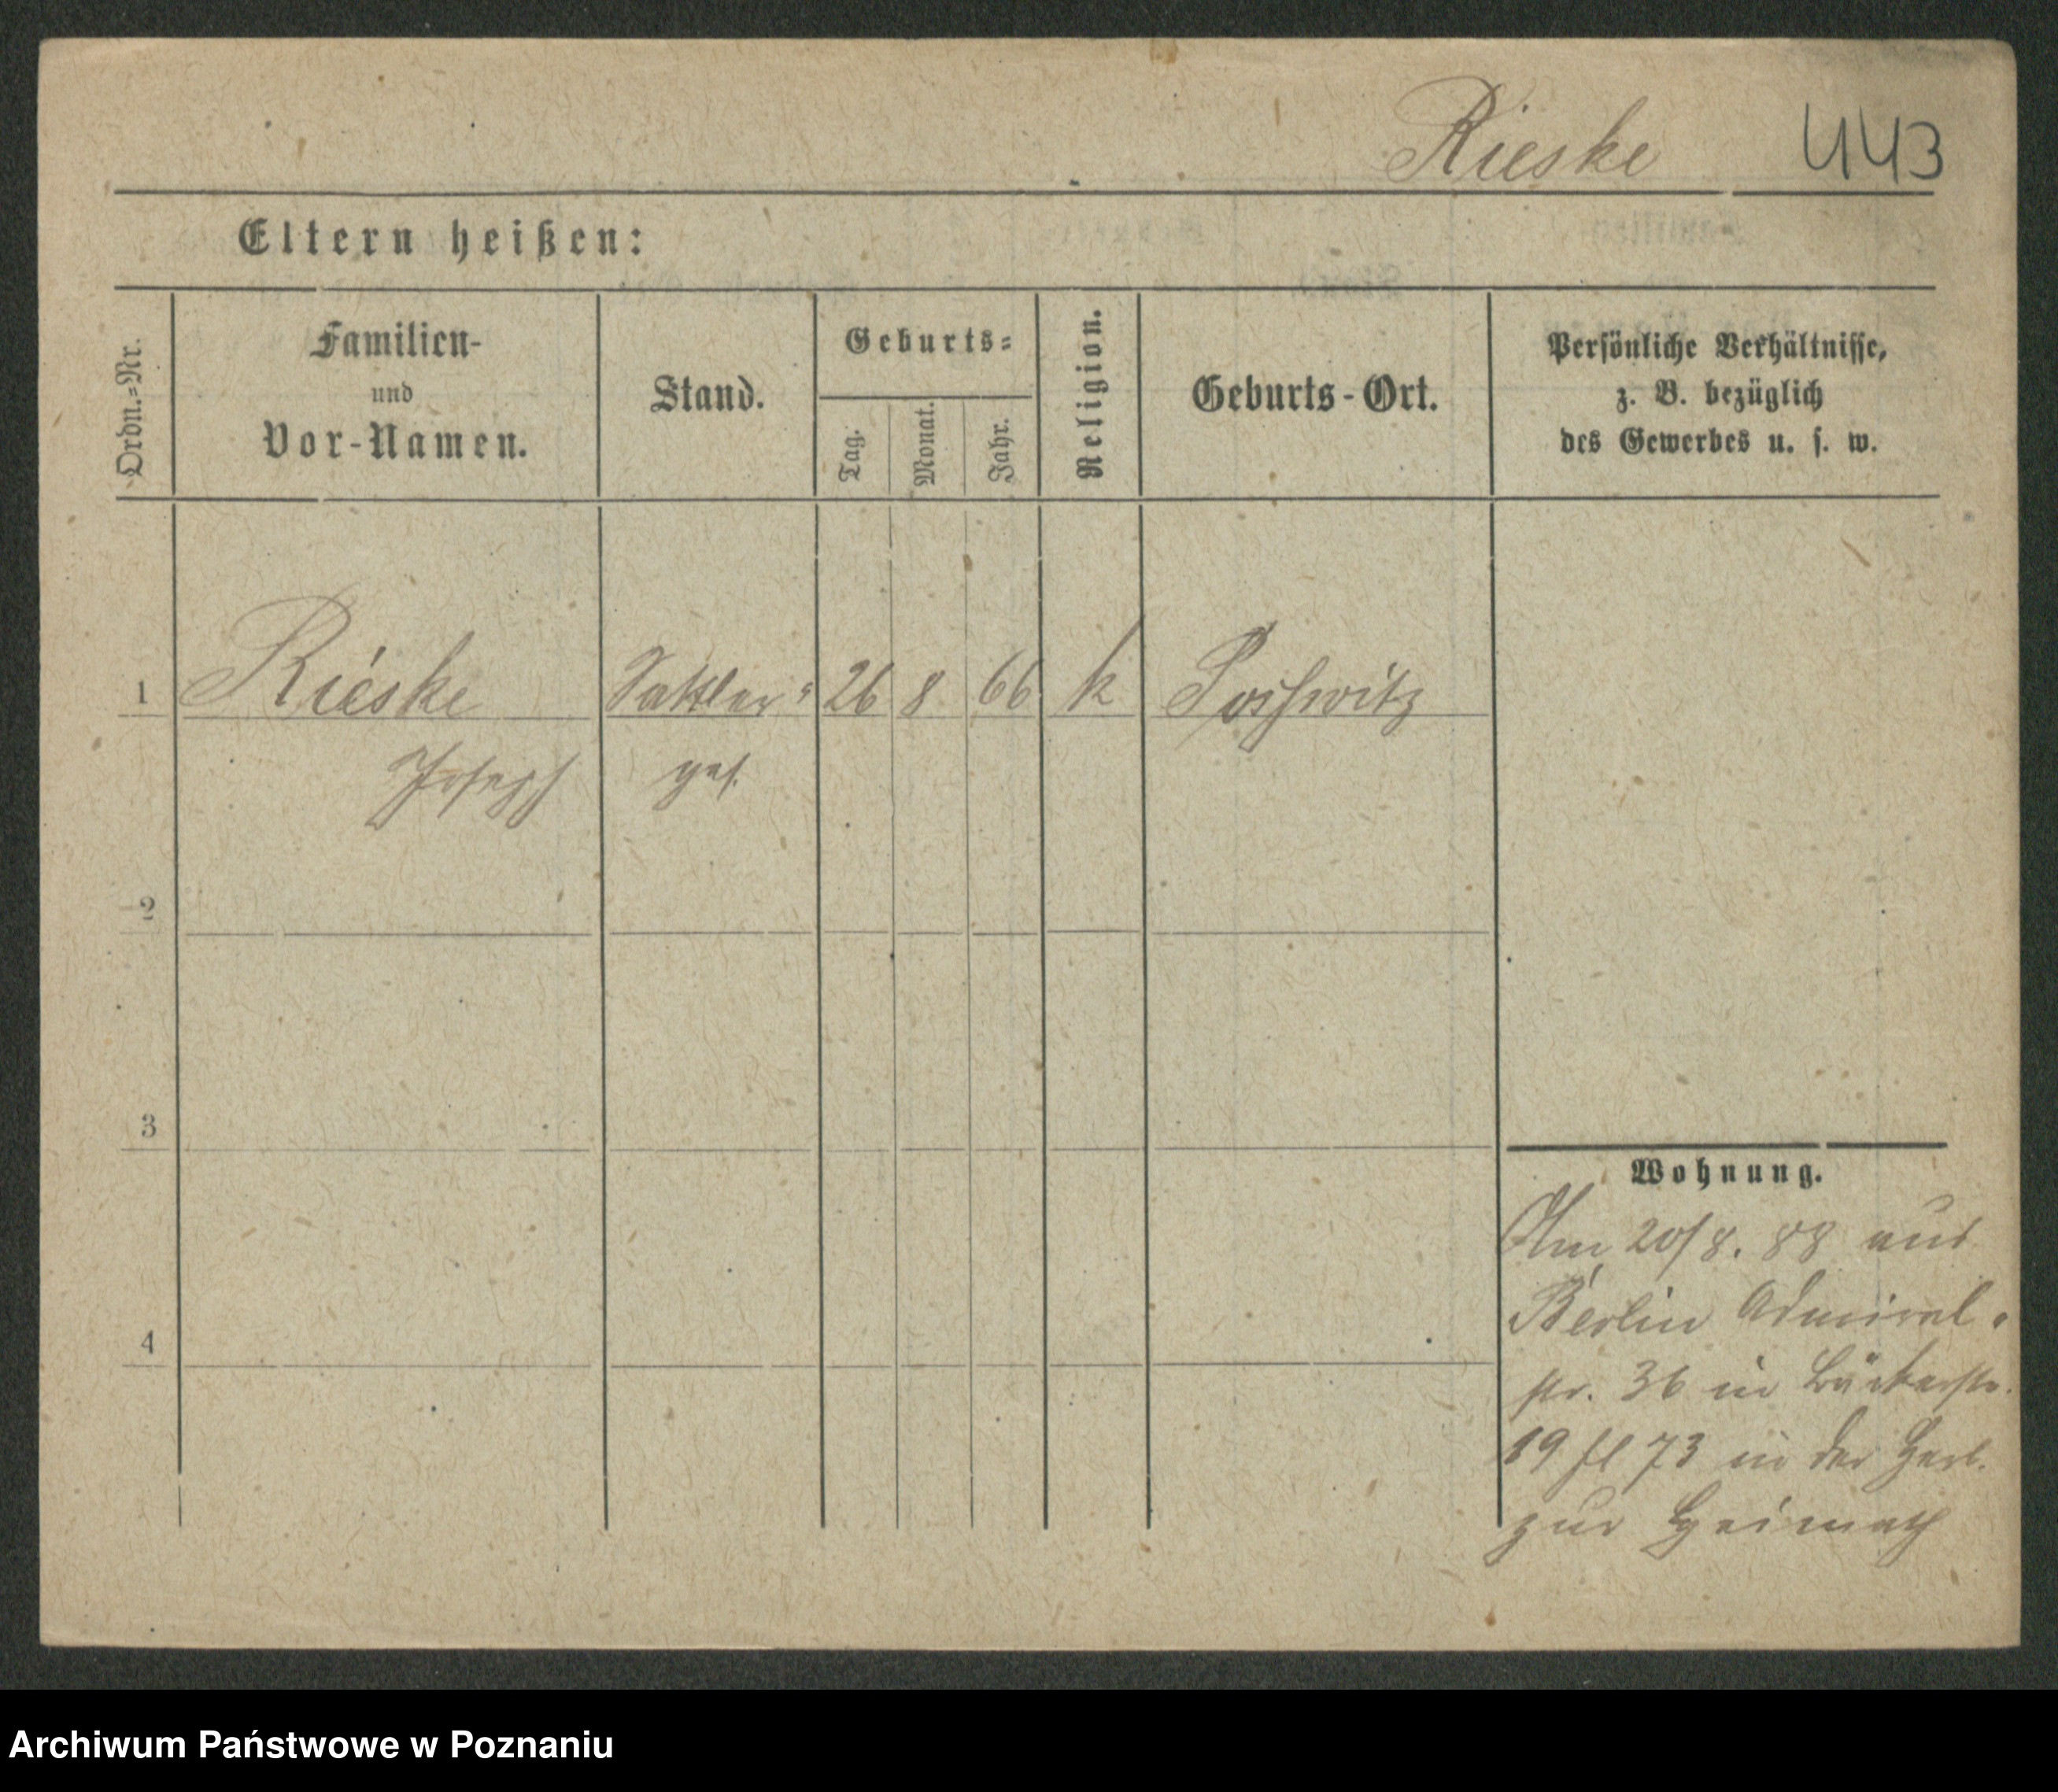 Rieske 443
Eltern heißen:
Ordn.=Nr.
Familien-
und
Vor-Namen.
Stand.
Geburts=
Tag.
Monat.
Jahr.
Religion.
Geburts-Ort.
Persönliche Verhältnisse,
z. B. bezüglich
des Gewerbes u. s. w.
1 Rieske Sattler= 26 8 66 k
Joseph ges.
2
3
4
Wohnung.
Am 20/8. 88 aus
Berlin Admiral=
str. 36 in Bäckerstr.
19 fl 73 in der Herb.
zur Heimath
Archiwum Państwowe w Poznaniu